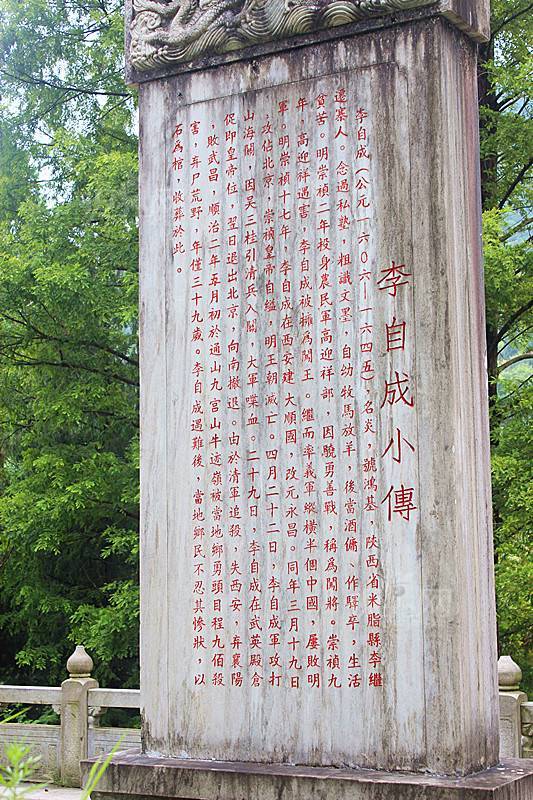 李自成小傳
李自成(公元一六〇六—一六四五),名炎,號鴻基,陝西省米脂縣李繼
遷寨人。念過私塾,粗識文墨,自幼牧馬放羊,後當酒傭、作驛卒,生活
貧苦。明崇禎二年投身農民軍高迎祥部,因驍勇善戰,稱為闖將。崇禎九
年,高迎祥遇害,李自成被擁為闖王。繼而率義軍縱橫半個中國,屢敗明
軍。明崇禎十七年,李自成在西安建大順國,改元永昌。同年三月十九日
,攻佔北京,崇禎皇帝自縊,明王朝滅亡。四月二十二日,李自成軍攻打
山海關,因吳三桂引清兵入關,大軍喋血。二十九日,李自成在武英殿倉
促即皇帝位,翌日退出北京,向南撤退。由於清軍追殺,失西安,弃襄陽
,敗武昌,順治二年五月初於通山九宮山牛迹嶺被當地鄉勇頭目程九佰殺
害,弃尸荒野,年僅三十九歲。李自成遇難後,當地鄉民不忍其慘狀,以
石為棺,收葬於此。